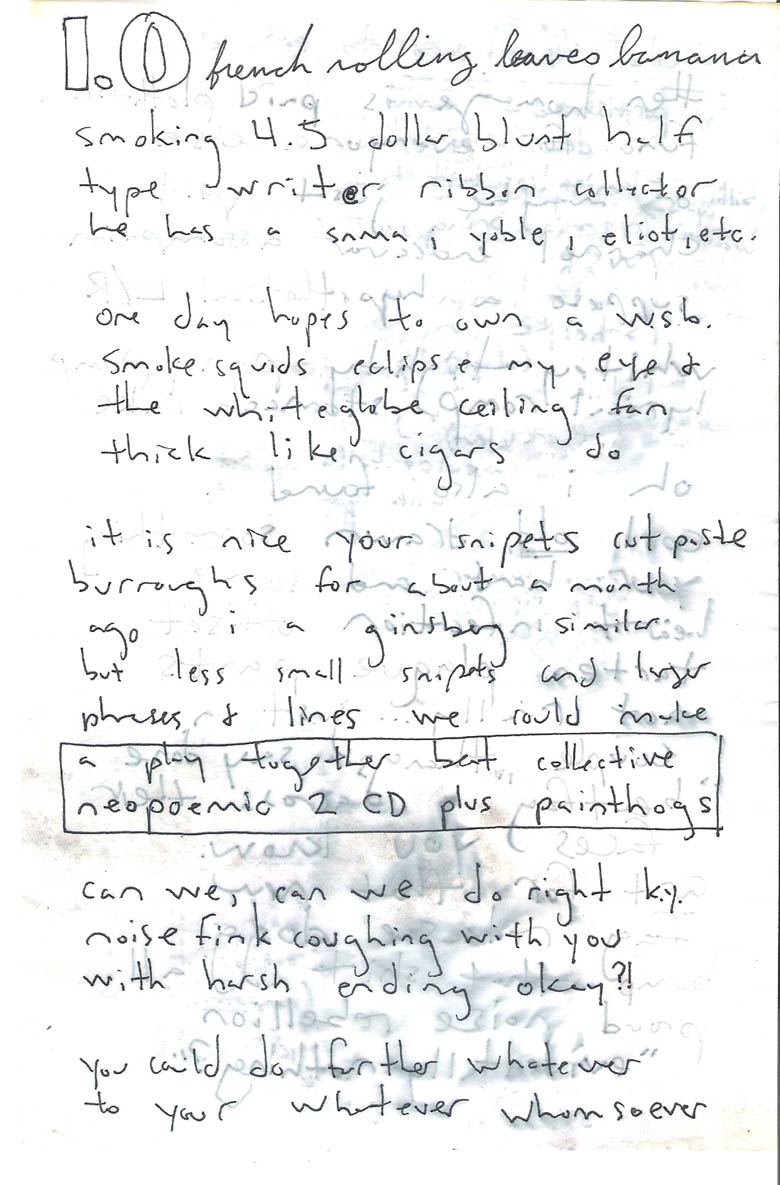 1.0 french rolling leaves banana
smoking 4.5 dollar blunt half
type writer ribbon collector
he has a snma, yoble, eliot, etc.
one day hopes to own a w.s.b.
smoke squids eclipse my eye &
the white globe ceiling fan
thick like cigars do
it is nice your snipets cut paste
burroughs for about a month
ago i a ginsberg similar
but less small snipets and larger
phrases & lines we could make
a play together beat collective
neopoemic 2 CD plus painthogs
can we, can we do right k.y.
noise fink coughing with you
with harsh ending okay?!
you could do further whatever
to your whatever whomsoever